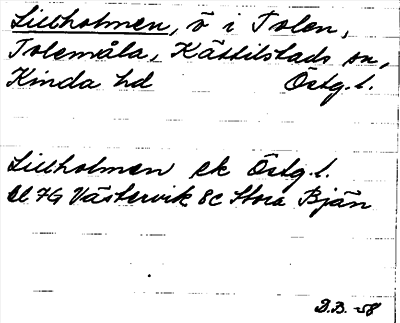 Lillholmen, ö i Tolen,
Tolemåla, Kättilstads sn,
Kinda hd Östg.l.
Lillholmen ek Östg.l.
bl 7G Västervik 8c Stora Bjän
D.B. -58